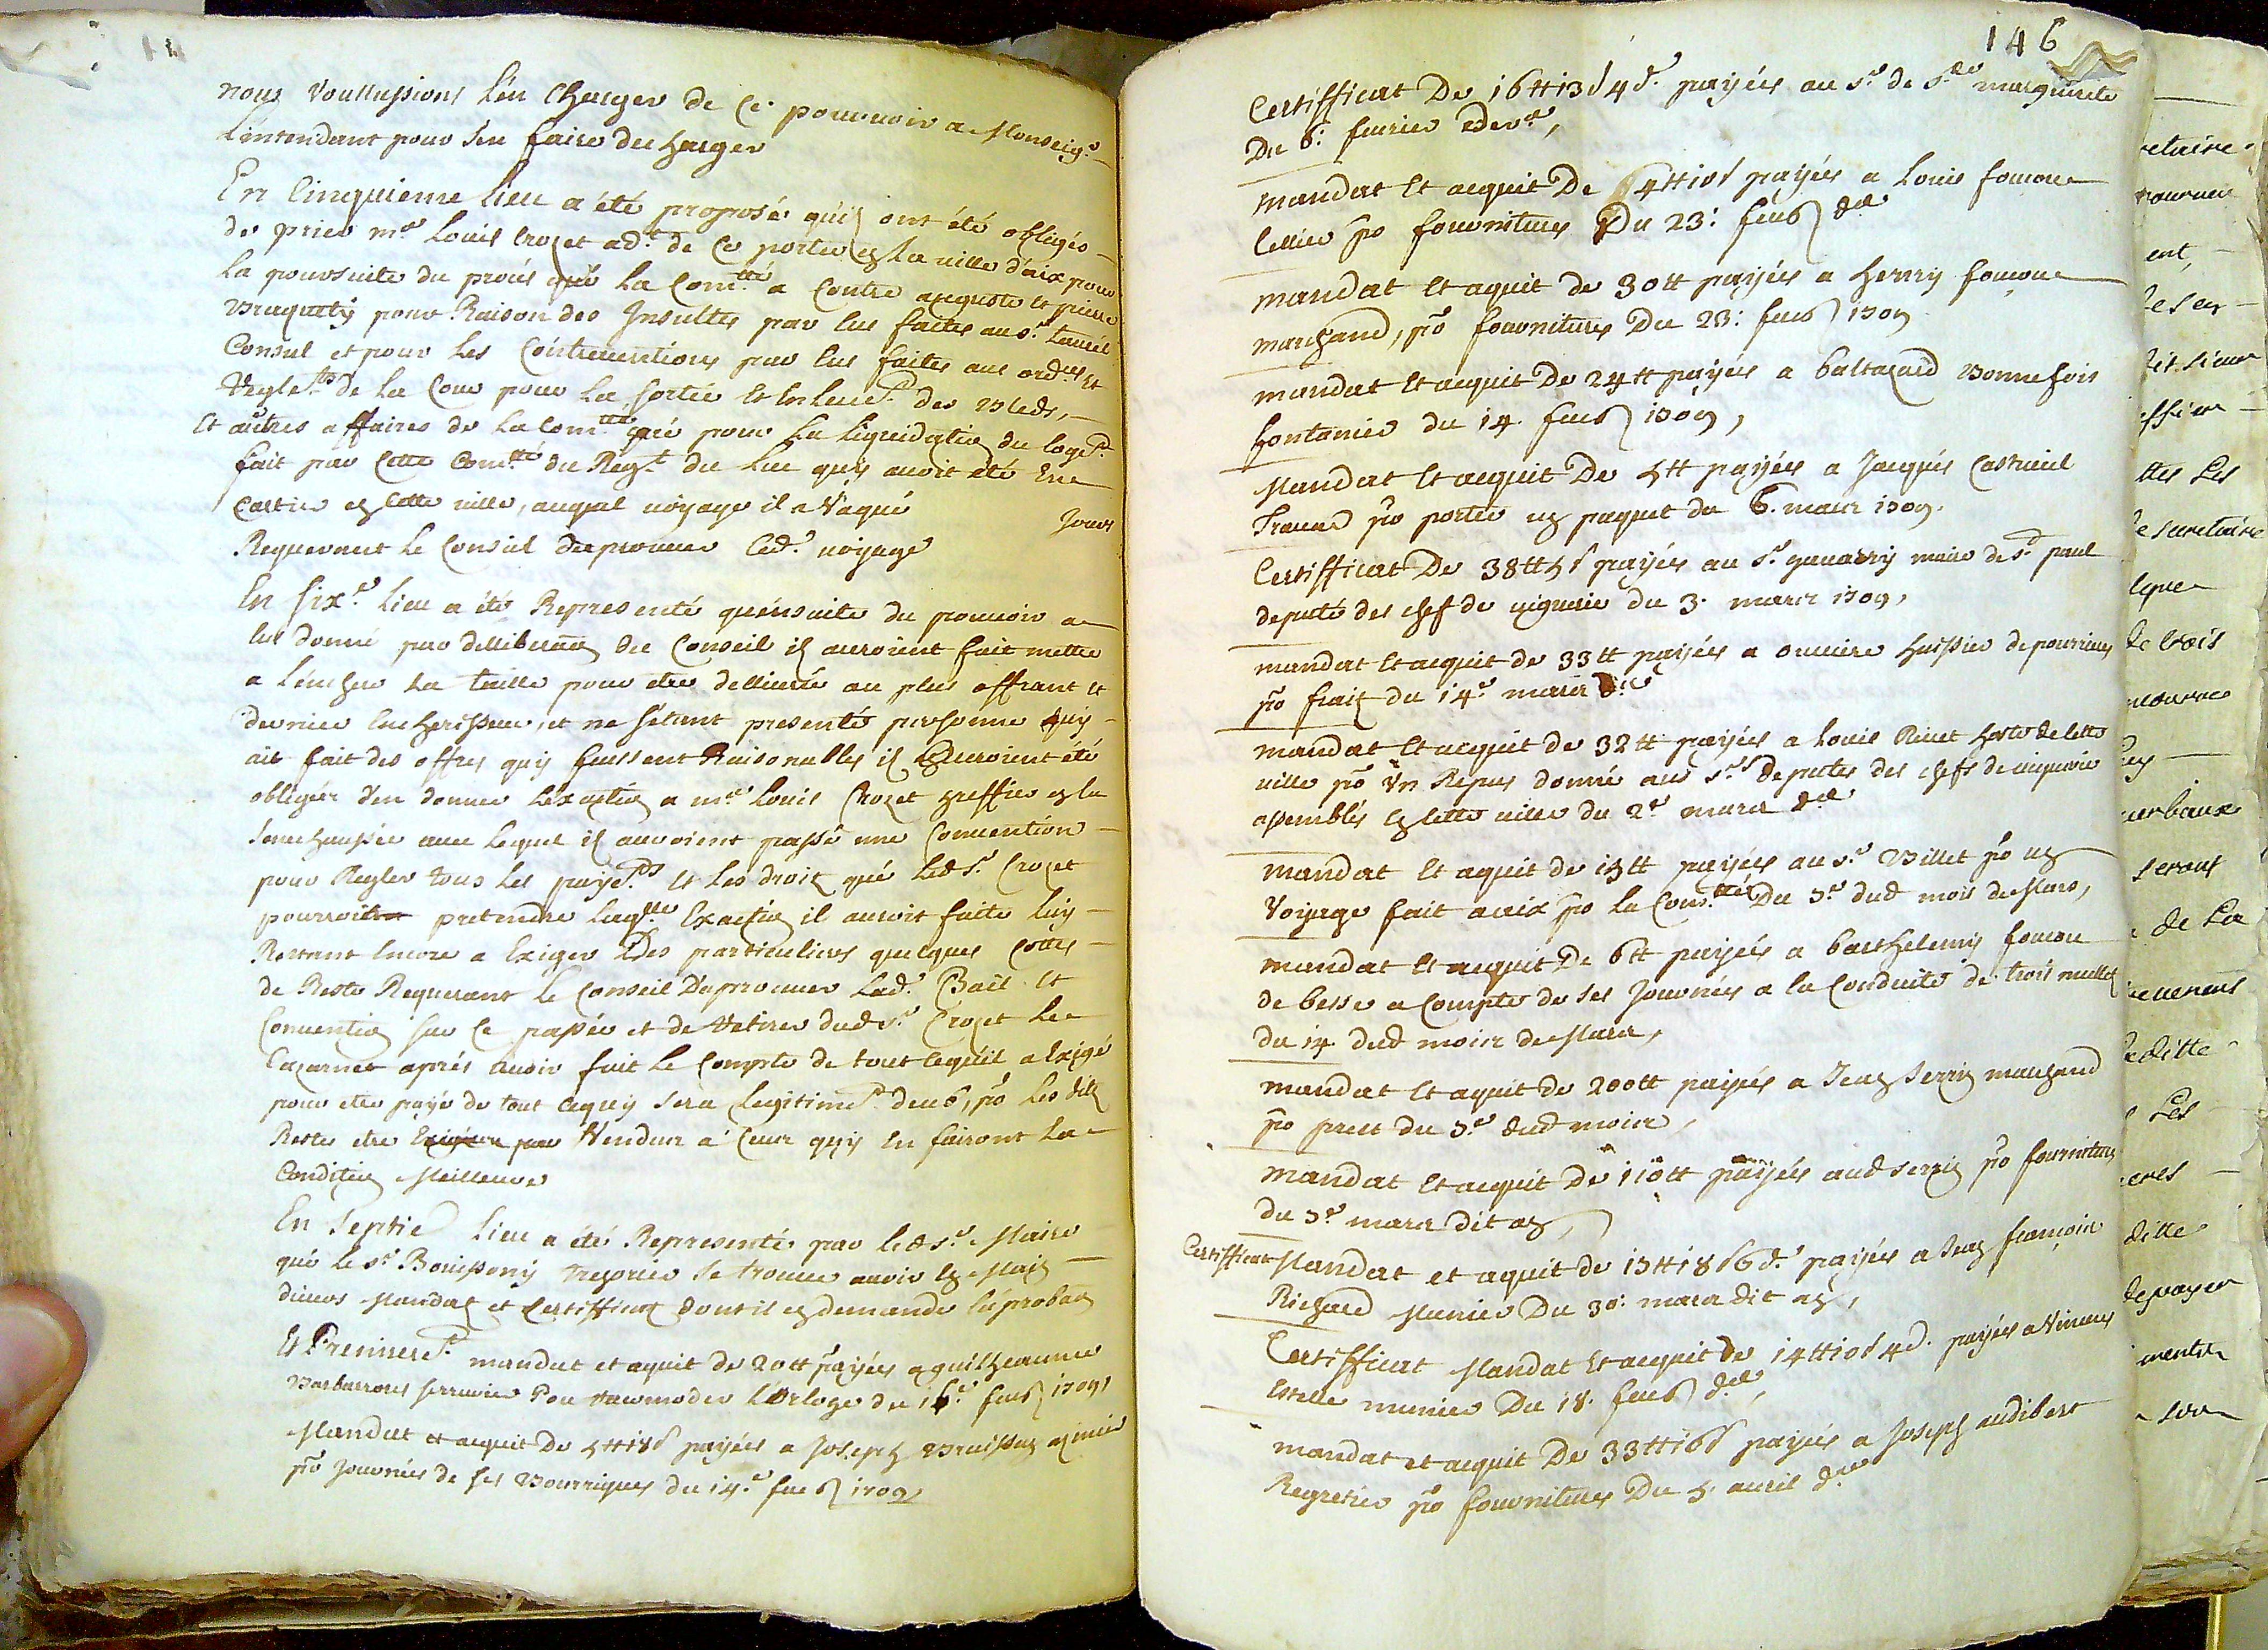 nous voullussions l'en charger de ce pourvoir a Monseigr.
L'intendant pour s'en faire decharger
En Cinquieme lieu a été proposé qu'ils ont été obligés
de prier me. Louis Crozet adt. de ce porter en la ville d'aix pour
la poursuite du procés que la Comtté. a Contre auguste et pierre
pour Raison des Insultes par eux faites au sr.
Consul et pour les Contreventions par eux faites aux ordces et
Reglets. de la Cour pour la sortie et enlevet. des Bleds,
Et autres affaires de la Comtté. pour la liquidation du loget.
fait par Cette Comtté. du Regt. du Luc quy avoit été En
Cartier en Cette ville, auquel voyage il a Vaqué jours
Requerant le Consiel d'aprouver led. voyage
En sixe. lieu a été Representé qu'ensuite du pouvoir a
eux donné par delliberaon du Conseil ils auroient fait mettre
a l'enchere la taille pour etre dellivrée au plus offrant et
dernier encherisseur, et ne s'étant presentés personne quy
ait fait des offres quy fussent Raisonables ils auroient été
obligés d'en donner l'exaction a me. Louis Crozet greffier en la
senechaussée avec lequel ils auroient passé une Convention
pour Regler tous les payets. et les droits que led sr. Crozet
pourroit pretendre laqlle. Exaction il auroit faite luy
Restant encore a Exiger des particuliers quelques Cottes
de Reste Requerant le Conseil D'aprouver lad. Bail et
Convention sur ce passée et de Retirer dud sr. Crozet le
Cazarnet aprés avoir fait le Compte de tout cequ'il a Exigé
pour etre payé de tout cequy sera legitimet. deub, po. les dits
Restes etre Vendus a Ceux quy en fairont la
Condition Meilleure
En septie lieu a été Representé par led sr. Maire
que le sr. Bouissony tresorier se trouve avoir en Main
divers Mandats et Certifficats dont il en demande l'aprobaon
Et Premieret. mandat et aquit de 20 tt payées a guilheaume
Barbarroux serrurier Pour racomoder L'orloge du 16e. feub 1709
Mandat et acquit de 5 tt 18 s payées a Joseph Bruissan
po. journées de ses Bourriques du 14e. feub 1709
146
Certifficat De 16 tt 13 s 4 d. payées au sr. de ste. marguerite
Du 6: fevrier
mandat Et acquit De 64 tt 10 s payées a Louis foucou
Cellier po fournitures Du 23: feub de
mandat et aquit de 30 tt payées a henry foucou
marchand, po fournitures Du 23: feub 1709
mandat et acquit De 24 tt payées a baltazard Bonnefois
fontanier du 14. feub 1709,
Mandat et acquit De 5 tt payées a Jacques Castueil
Travad po porter un paquet du 6. mars 1709.
Certifficat De 38 tt 5 s payées au sr. maire de st paul
deputé des chef de viguerie du 3. mars 1709,
mandat et acquit de 33 tt payées a huissier de pourrieres
po frais du 14e mars de
mandat Et acquit de 32 tt payées a Louis Riuet hoste de Cette
ville po Un Repas donné aux srs deputés des chefs de viguerie
assemblés en Cette ville du 2e mars de
mandat et aquit de 15 tt payées au sr. Billet po un
Voyage fait a aix po la Comtté Du 3e dud mois de Mars,
mandat et acquit De 6 tt payées a barthelemy foucou
de besse a Compte de ses journées a la Conduite de trois mullets
du 14 dud mois de Mars,
mandat et aquit de 200 tt payées a Jean serrin marchand
po prest du 3e dud mois,
mandat Et acquit De 110 tt payées aud serrin po fournitures
du 3e mars dit an,
Certifficat Mandat et aquit de 15 tt 18 s 6 d. payées a Jean françois
Richard Munier Du 30: mars dit an,
Certifficat Mandat et acquit De 14 tt 10 s 4 d. payées a Vincens
Estelle munier Du 18. feub de,
mandat et acquit De 33 tt 16 s payées a Joseph audibert
Regretier po fournitures Du 5. avril de